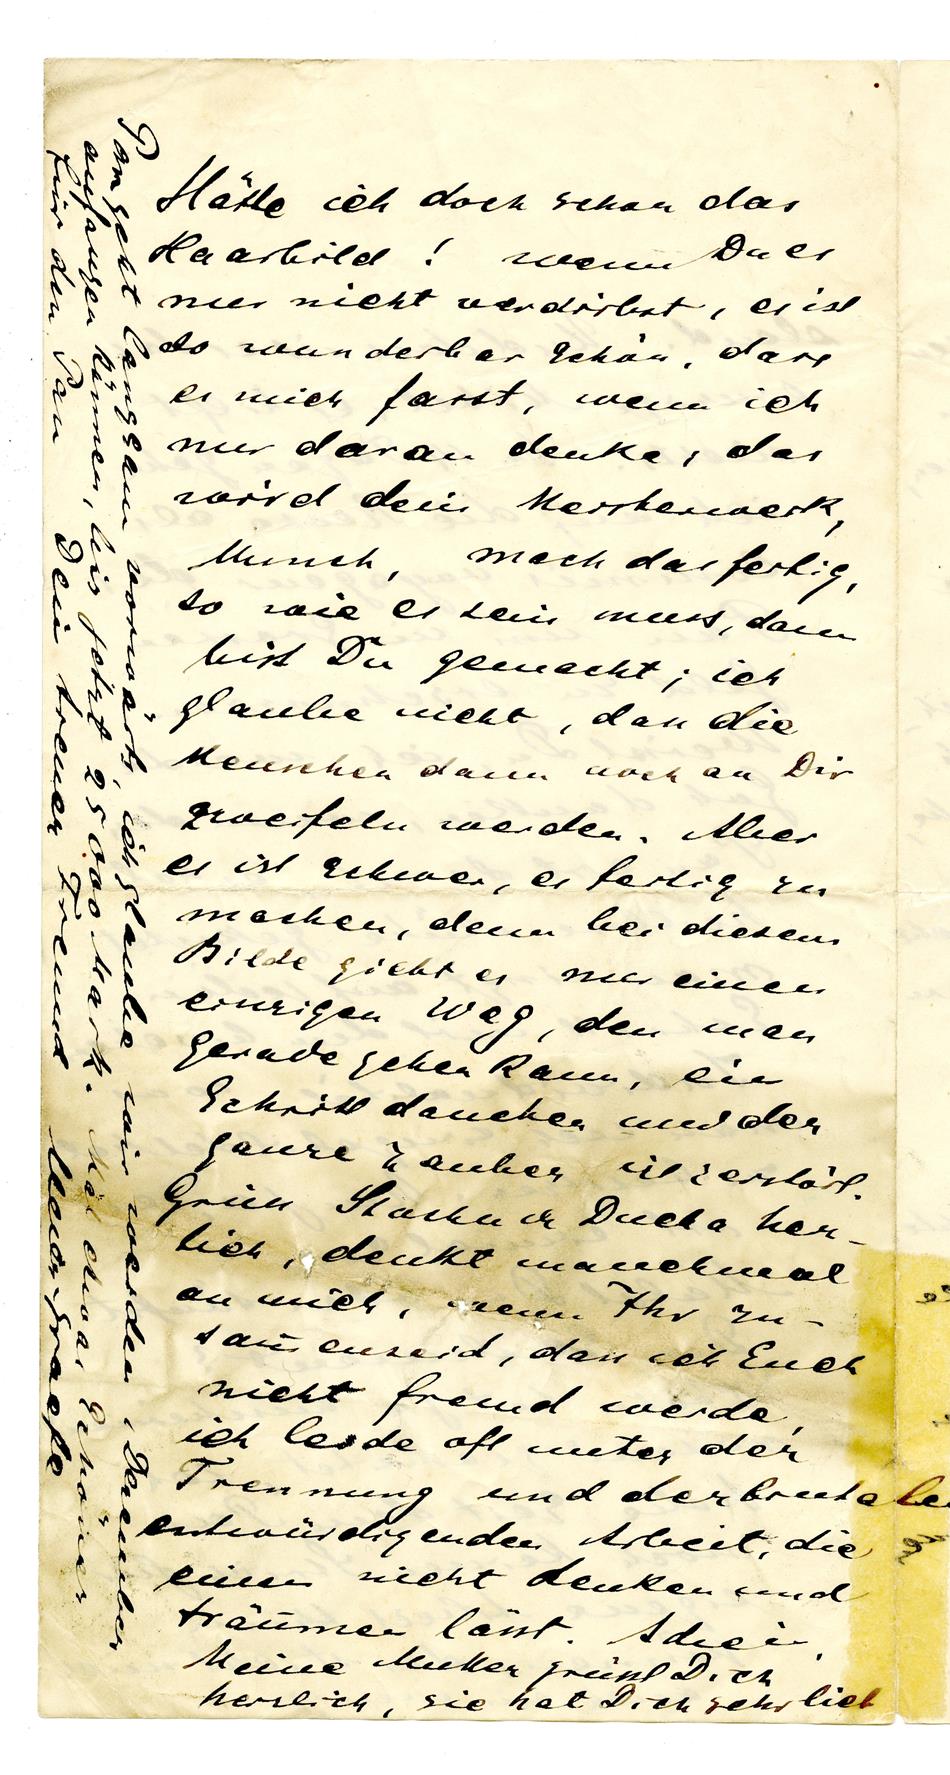 Hätte ich doch schon das
Haarbild! wenn Du es
nur nicht verdirbst, es ist
so wunderbar schön, dass
es mich fasst, wenn ich
nur daran denke; das
wird dein Meisterwerk,
Munch, mach das fertig,
so wie es sein muss, dann
bist Du gemacht; ich
glaube nicht, das die
Menschen dann noch an Dir
zweifeln werden. Aber
es ist schwer, es fertig zu
machen, denn bei diesem
Bilde giebt es nur einen
einzigen Weg, den man
gerade gehen kann, ein
Schritt daneben und der
ganze Zauber ist zerstört.
Grüss Stachu u Ducha herz-
lich, denkt manchmal
an mich, wenn Ihr zu-
sam̄enseid, dass ich Euch
nicht fremd werde,
ich leide oft unter der
Trennung und der brutalen
entwürdigenden Arbeit, die
einen nicht denken und
träumen lässt. Adieu,
Meine Mutter grüsst Dich
herzlich, sie hat Dich sehr lieb
Pan geht langsam vorwärts, ich glaube wir werden Dezember
anfangen können, bis jetzt 25 000 Mark. Schönes
für den Pan Dein treuer Freund Meier Graefe